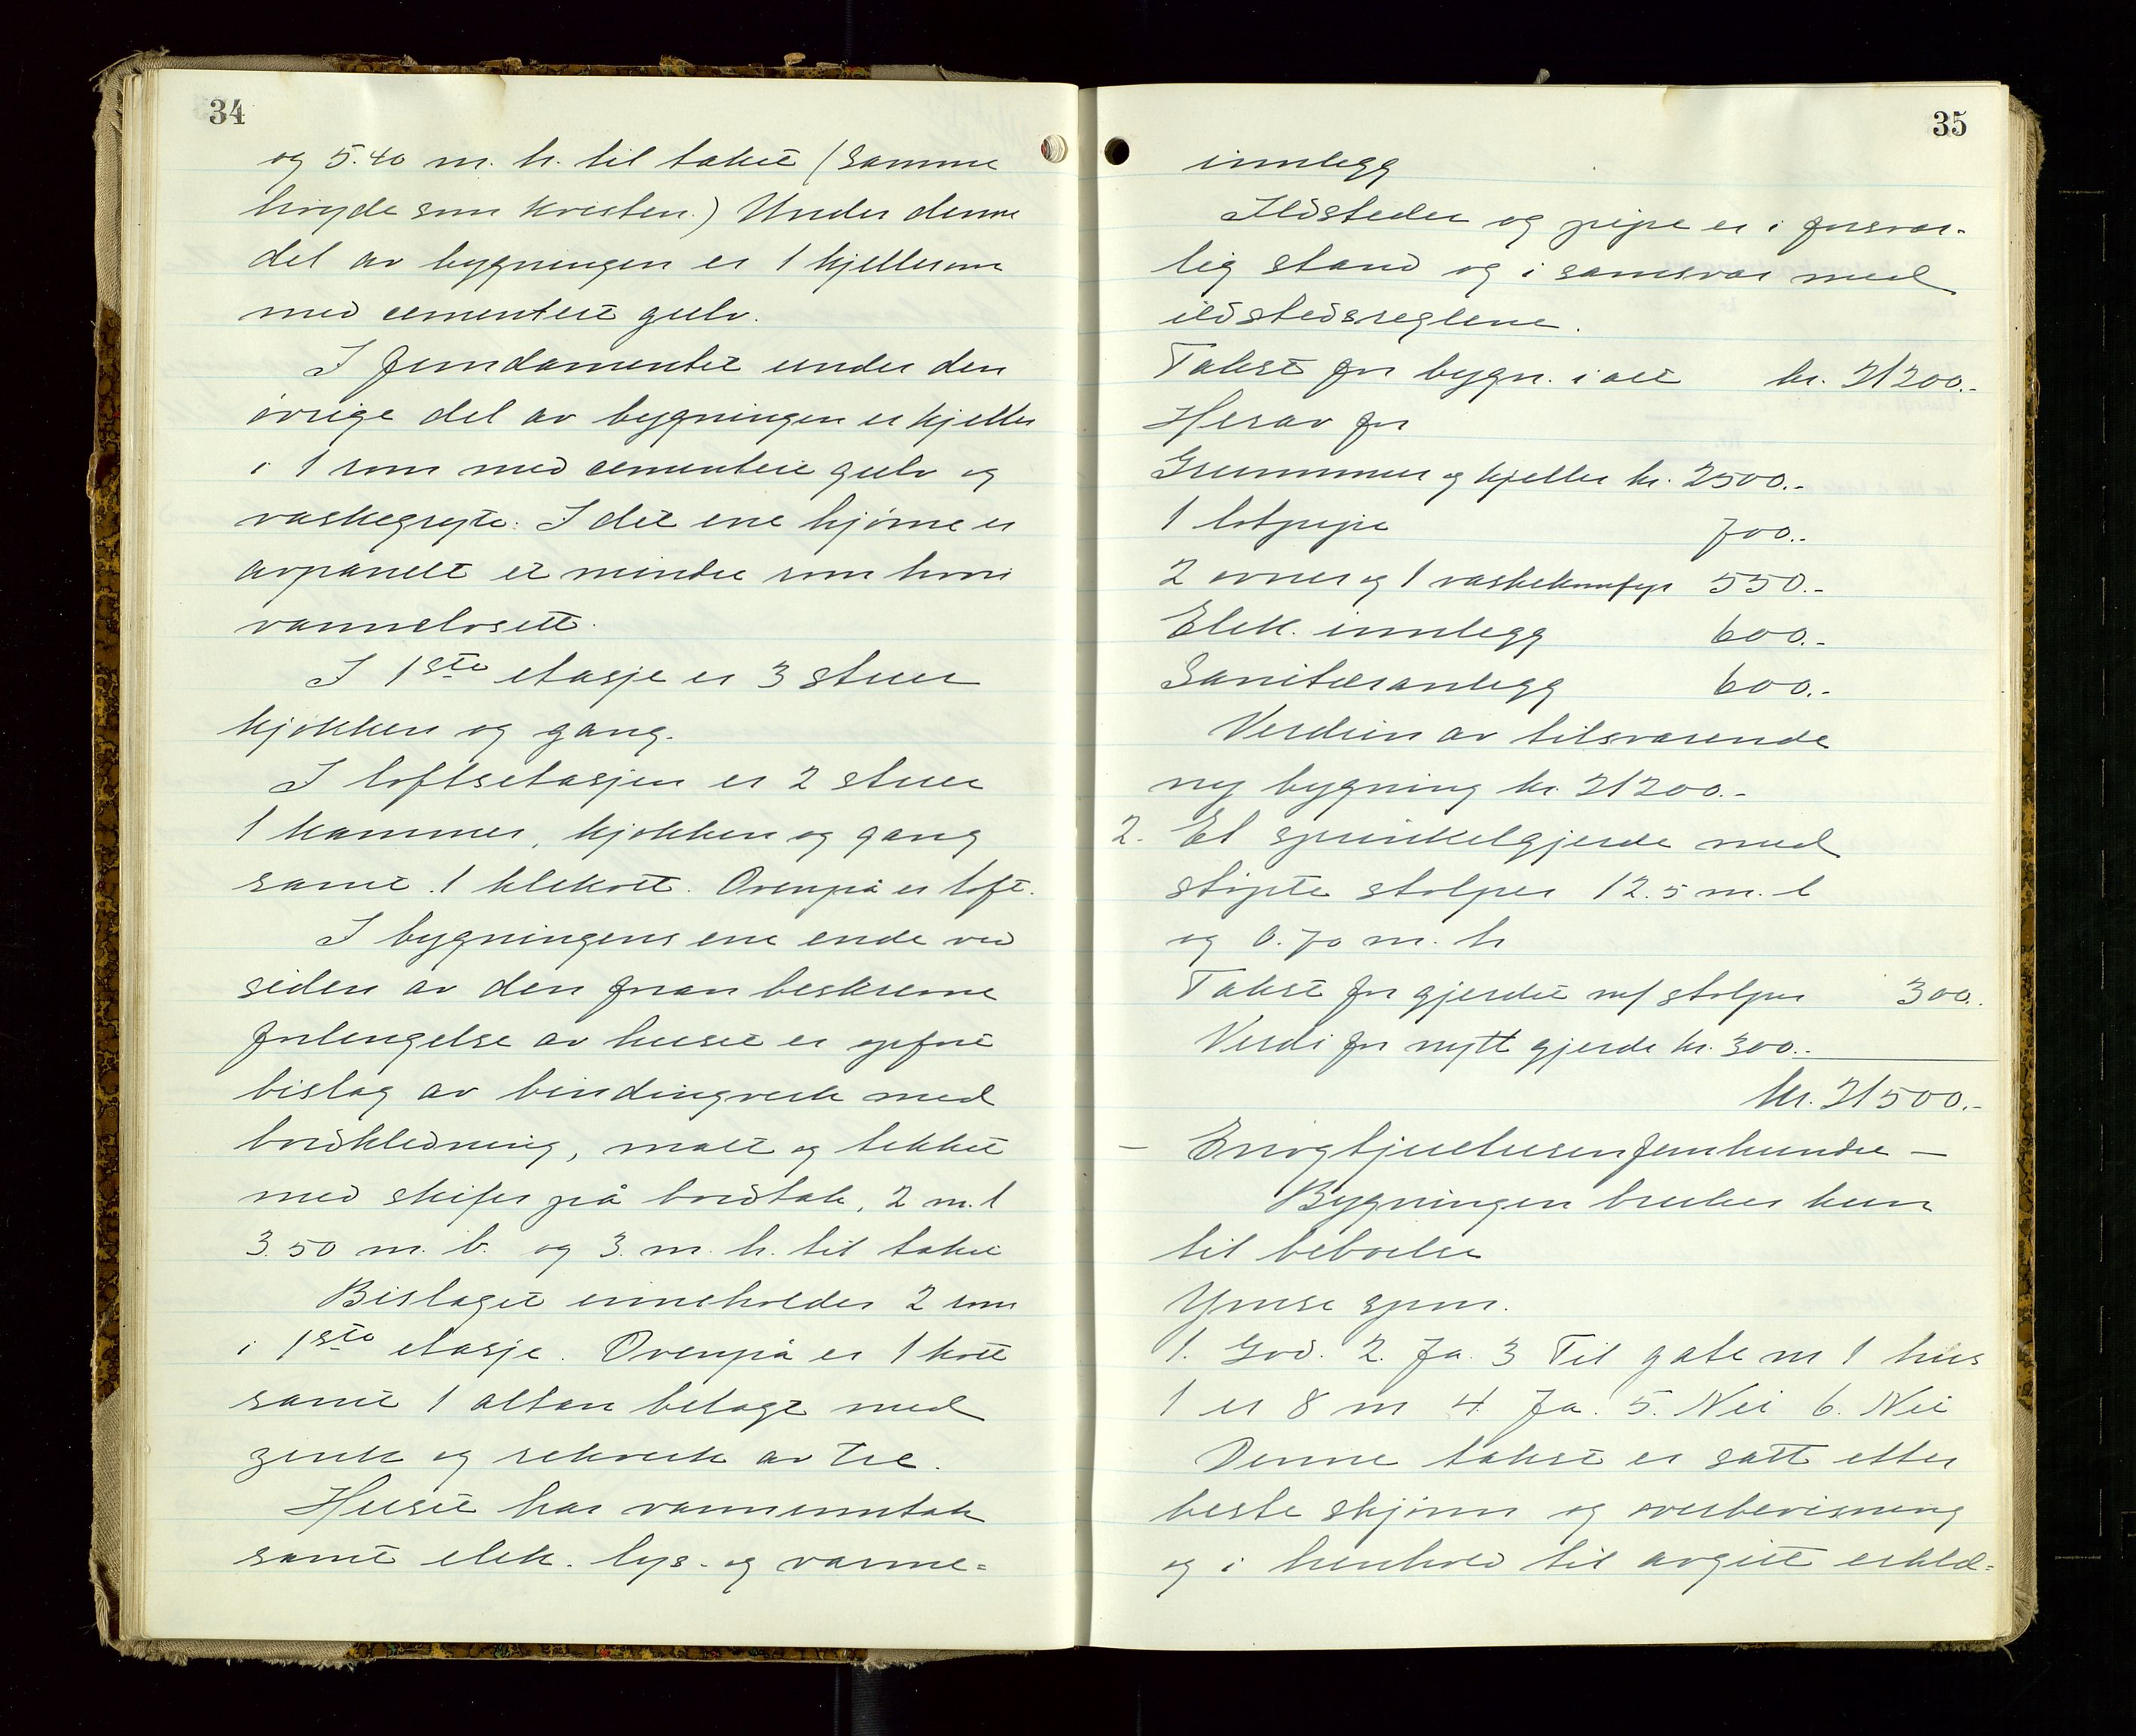 34
og 5.40 m. h. til taket (samme
høyde som kvisten.) Under denne
del av bygningen er 1 kjellerrom
med cementert gulv.
I fundamentet under den
øvrige del av bygningen er kjeller
i 1 rom med cementert gulv og
vaskegryte. I det ene hjørne er
avpanelt et mindre rom hvori
vannclosett.
I 1ste etasje er 3 stuer
kjøkken og gang.
I loftsetasjen er 2 stuer
1 kammer, kjøkken og gang
samt 1 klekott. Ovenpå er loft.
I bygningens ene ende ved
siden av den foran beskrevne
forlengelse av huset er opført
bislag av bindingverk med
bordkledning, malt og tekket
med skifer på bordtak, 2 m. l
3.50 m. b. og 3. m. h. til taket
Bislaget inneholder 2 rom
i 1ste etasje. Ovenpå er 1 kott
samt 1 altan belagt med
zink og rekverk av tre.
Huset har vanninntak
samt elek. lys- og varme=
35
innlegg
Ildsteder og pipe er i forsvar-
lig stand og i samsvar med
ildstedsreglene.
Takst for bygn. i alt kr. 21200.-
Herav for
Grunnmur og kjeller kr. 2500.-
1 løtpipe 700.-
2 ovner og 1 vaskekomfyr 550.-
Elek. innlegg 600.-
Sanitæranlegg 600.-
Verdien av tilsvarende
ny bygning kr. 21200.-
2. Et sprinkelgjerde med
støpte stolper 12.5 m. l
og 0.70 m. h
Takst for gjerdet m/ stolper 300.
Verdi for nytt gjerde kr. 300.-
kr. 21500.-
- Enogtjuetusenfemhundre -
Bygningen brukes kun
til beboelse
Ymse spm.
1. God. 2. Ja. 3 Til gate nr 1 hus
1 er 8 m 4. Ja. 5. Nei 6. Nei
Denne takst er satt etter
beste skjønn og overbevisning
og i henhold til avgitt erklæ=